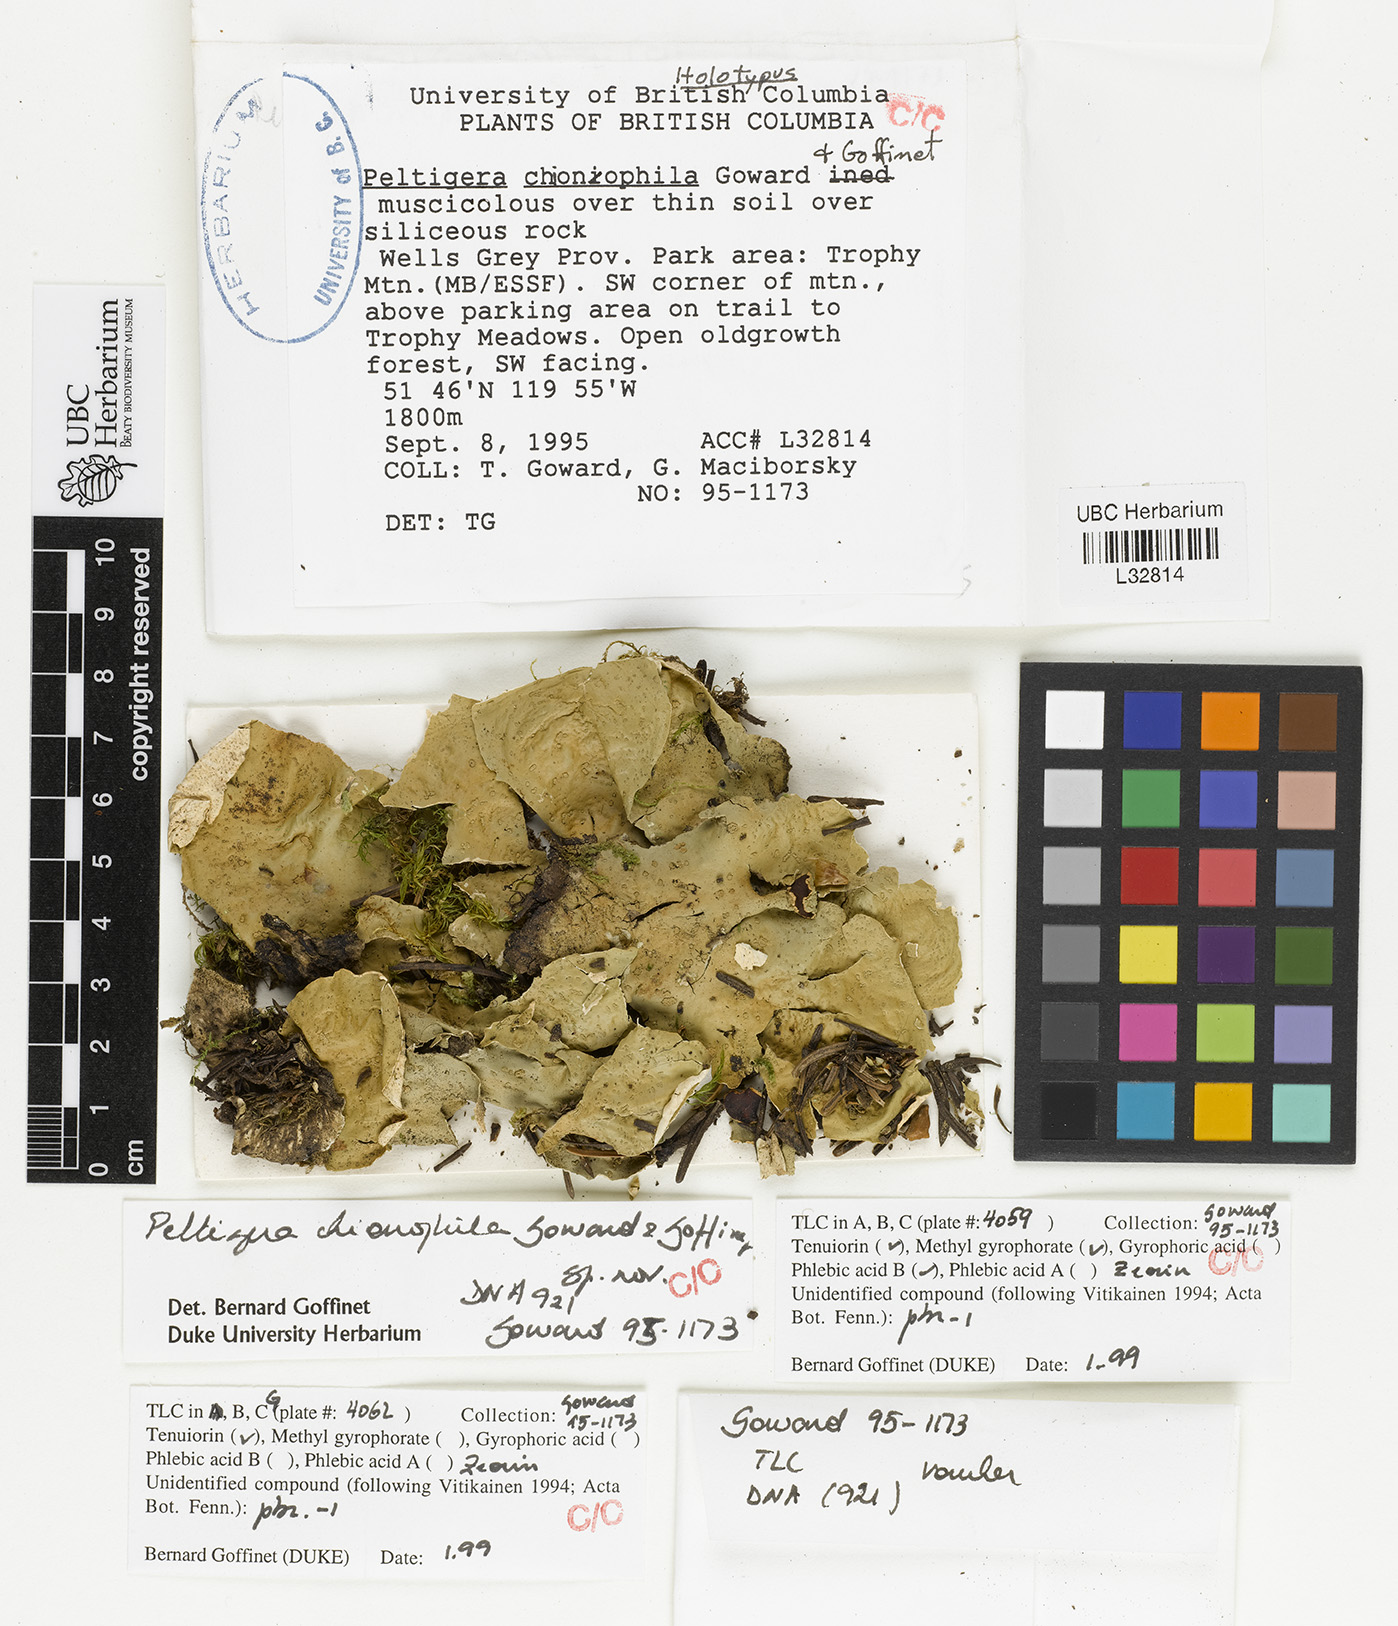 Holotypus
University of British Columbia
PLANTS OF BRITISH COLUMBIA
C/C
& Goffinet
Peltigera chionophila Goward ined
muscicolous over thin soil over
siliceous rock
Wells Grey Prov. Park area: Trophy
Mtn.(MB/ESSF). SW corner of mtn.,
above parking area on trail to
Trophy Meadows. Open oldgrowth
forest, SW facing.
51 46'N 119 55'W
1800m
Sept. 8, 1995 ACC# L32814
COLL: T. Goward, G. Maciborsky
NO: 95-1173
DET: TG
HERBARIUM
UNIVERSITY of B.C.
UBC Herbarium
L32814
UBC
Herbarium
BEATY BIODIVERSITY MUSEUM
10 9 8 7 6 5 4 3 2 1 0
cm
copyright reserved
Peltigera chionophila Goward & Goffinet
sp. nov.
DNA 921
C/C
Det. Bernard Goffinet
Duke University Herbarium
Goward 95-1173
TLC in A, B, C (plate #: 4059 ) Collection: Goward
95-1173
Tenuiorin (✓), Methyl gyrophorate (✓), Gyrophoric acid ( )
Phlebic acid B (✓), Phlebic acid A ( ) Zeorin
C/C
Unidentified compound (following Vitikainen 1994; Acta
Bot. Fenn.): phz-1
Bernard Goffinet (DUKE) Date: 1-99
TLC in A, B, C G (plate #: 4062 ) Collection: Goward
95-1173
Tenuiorin (✓), Methyl gyrophorate ( ), Gyrophoric acid ( )
Phlebic acid B ( ), Phlebic acid A ( ) Zeorin
Unidentified compound (following Vitikainen 1994; Acta
Bot. Fenn.): phz.-1
C/C
Bernard Goffinet (DUKE) Date: 1.99
Goward 95-1173
TLC
DNA (921) voucher